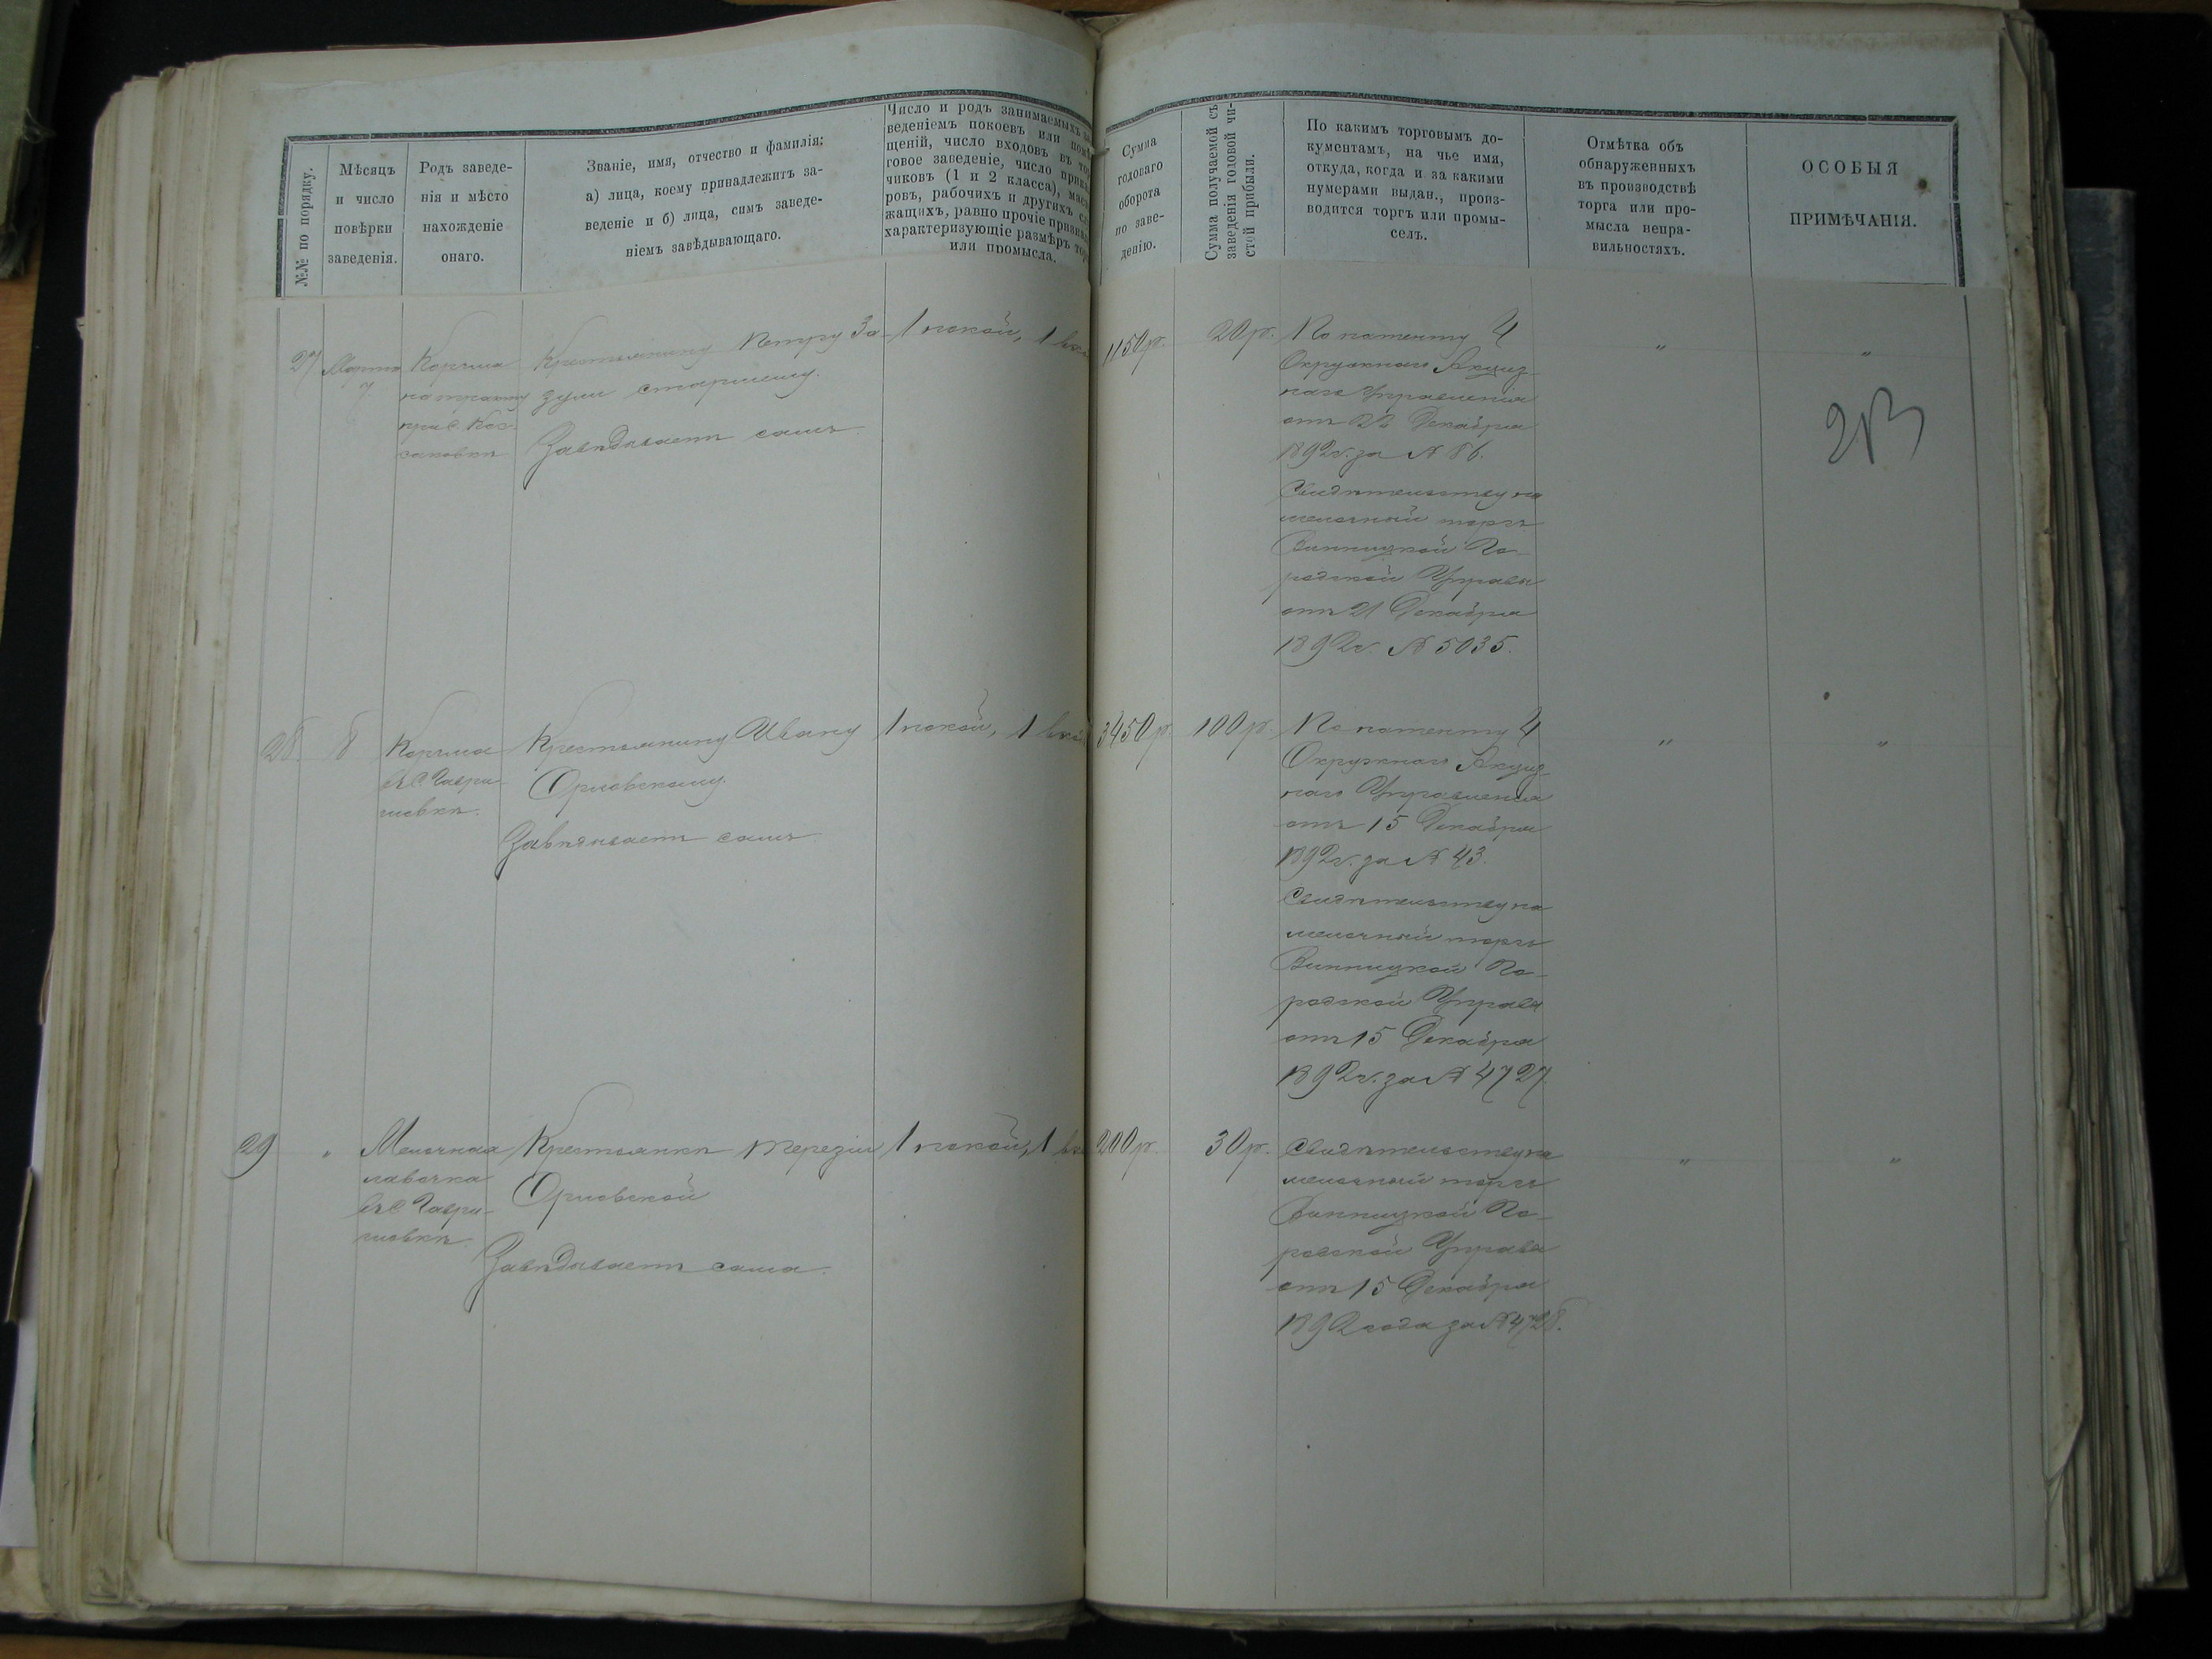 №№ по порядку.
Мѣсяцъ
и число
повѣрки
заведенія.
Родъ заведе-
нія и мѣсто
нахожденіе
онаго.
Званіе, имя, отчество и фамилія:
а) лица, коему принадлежитъ за-
веденіе и б) лица, симъ заведе-
ніемъ завѣдывающаго.
Число и родъ занимаемыхъ за-
веденіемъ покоевъ или помѣ-
щеній, число входовъ въ тор-
говое заведеніе, число прика-
чиковъ (1 и 2 класса), масте-
ровъ, рабочихъ и другихъ слу-
жащихъ, равно прочіе признаки
характеризующіе размѣръ торга
или промысла.
Сумма
годоваго
оборота
по заве-
денію.
Сумма получаемой съ
заведенія годовой чи-
стой прибыли.
По какимъ торговымъ до-
кументамъ, на чье имя,
откуда, когда и за какими
нумерами выдан., произ-
водится торгъ или промы-
селъ.
Отмѣтка объ
обнаруженныхъ
въ производствѣ
торга или про-
мысла непра-
вильностяхъ.
ОСОБЫЯ
ПРИМѢЧАНІЯ.
27
Марта
7
Корчма
на тракту
при с. Кос-
саковкѣ
Крестьянину Петру За-
зули старшему.
Завѣдываетъ самъ
1 покой, 1 вхо
1150 р.
20 р.
По патенту 4
Окружнаго Акциз-
наго Управленія
отъ 22 Декабря
1892 г. за № 86.
Свидѣтельству на
мелочный торгъ
Винницкой Го-
родской Управы
отъ 21 Декабря
1892 г. № 5035.
"
"
213
28.
8
Корчма
въ с. Гаври-
шовкѣ.
Крестьянину Ивану
Орловскому.
Завѣдываетъ самъ
1 покой, 1 вход
3450 р.
100 р.
По патенту 4
Окружнаго Акциз-
наго Управленія
отъ 15 Декабря
1892 г. за № 43.
Свидѣтельству на
мелочный торгъ
Винницкой Го-
родской Управы
отъ 15 Декабря
1892 г. за № 4727.
"
"
29
"
Мелочная
лавочка
въ с. Гаври-
шовкѣ.
Крестьянкѣ Терезіи
Орловской
Завѣдываетъ сама.
1 покой, 1 вхо
200 р.
30 р.
Свидѣтельству на
мелочный торгъ
Винницкой Го-
родской Управы
отъ 15 Декабря
1892 года за № 4728.
"
"